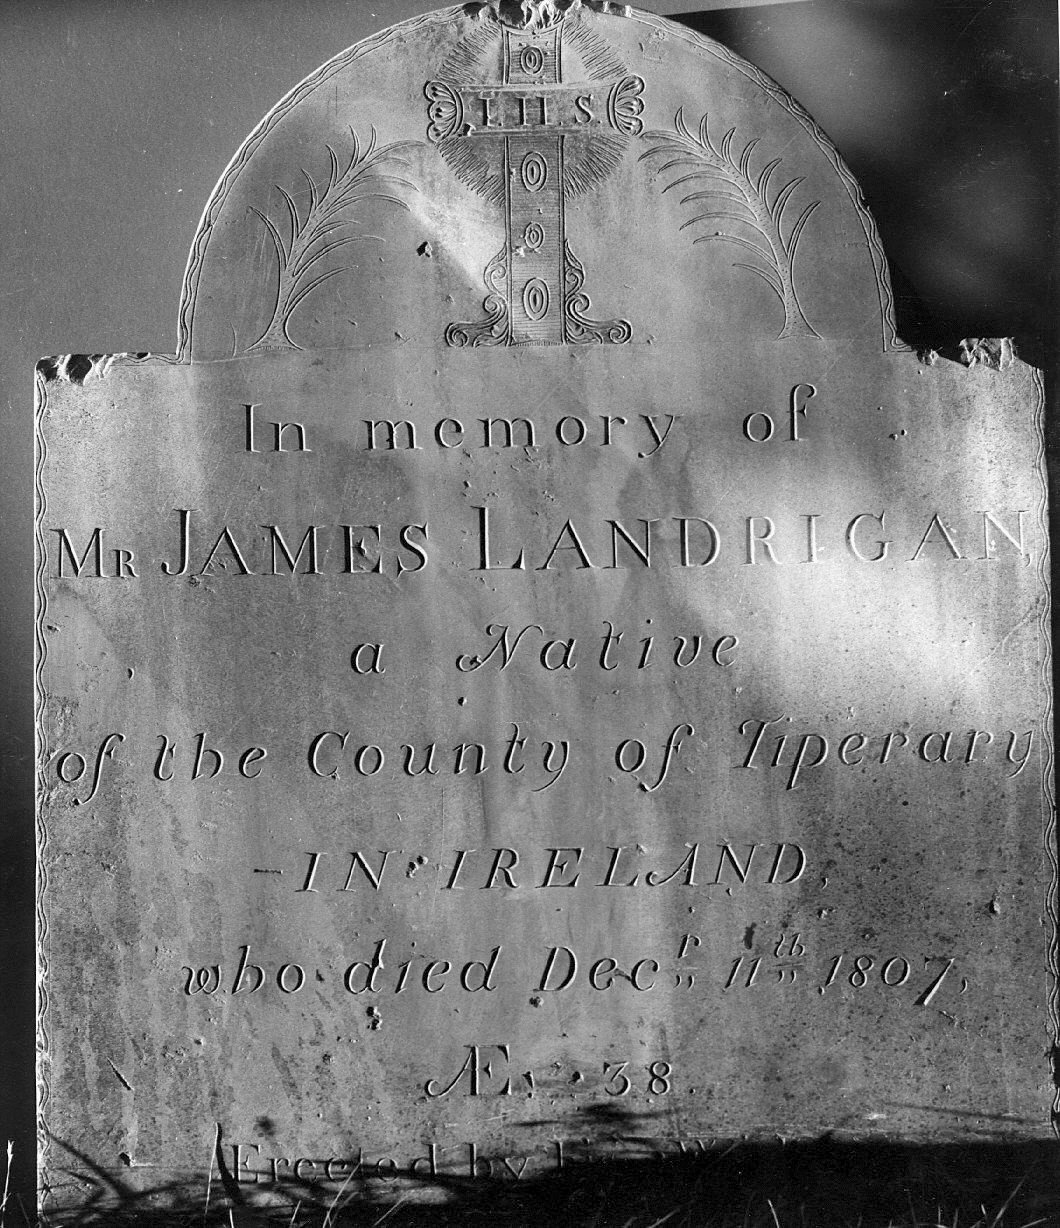 I H S
In memory of
Mr JAMES LANDRIGAN,
a Native
of the County of Tiperary
-IN IRELAND,
who died Decr 11th 1807,
Æ 38.
Erected by